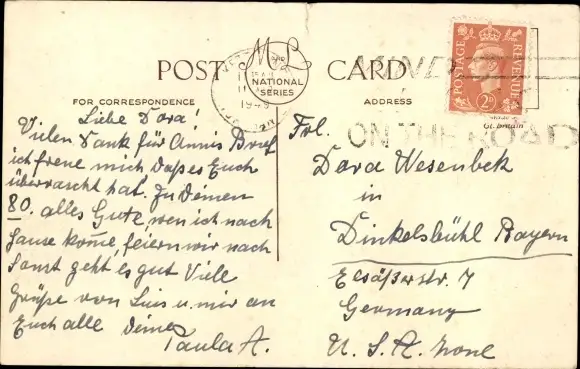 POST CARD
M.S.
NATIONAL
SERIES
1949
POSTAGE REVENUE
2D
MIND
ON THE ROAD
FOR CORRESPONDENCE
ADDRESS
Gt. Britain
Liebe Dora!
Vielen Dank für Annis Brief
ich freue mich daß es Euch
überrascht hat. Zu Deinen
80. alles Gute, wen ich nach
Hause kome, feiern wir nach
Sonst geht's gut Viele
Grüße von Luis u. mir an
Euch alle Deine
Paula A.
Frl.
Dora Wesenbek
in
Dinkelsbühl Bayern
Elsäßerstr. 7
Germany
U. S. A. Zone